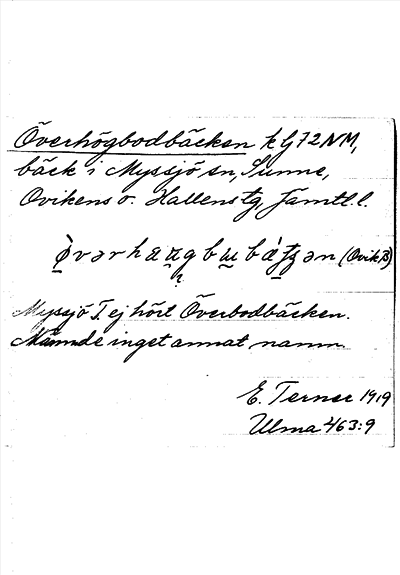 Överhögbodbäcken kG72NM,
bäck i Myssjö sn, Sunne,
Ovikens o. Hallens tg, Jämtl. l.
(Ovik B)
Myssjö I. ej hört Överbodbäcken.
Nämnde inget annat namn
E. Terner 1919
Ulma 463:9